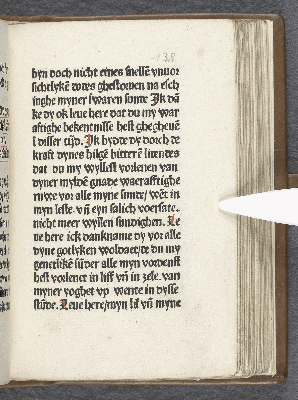 138
byn doch nicht eines snellē vnuor
sichtlykē dodes ghestoruen na esch
inghe myner swaren sunte Ik dā
ke dy ok leue here dat du my war
aftighe bekentnisse hest ghegheuē
i disser tijd. Ik bydde dy dorch de
kraft dynes hilgē bitterē liendes
dat du my wyllest vorlenen van
dyner myldē gnade waeraftighe
ruwe vor alle myne sunde/ wēt in
myn leste. vñ eyn salich voersate.
nicht meer wyllen sundighen. Le
ue here ick dankname dy vor alle
dyne gotlyken woldaet/de du my
genetlikē sūder alle myn vordenst
hest vorlenet in liff vñ in zele. van
myner yoghet vp wente in dysse
stūde. Leue here/myn lif vñ myne